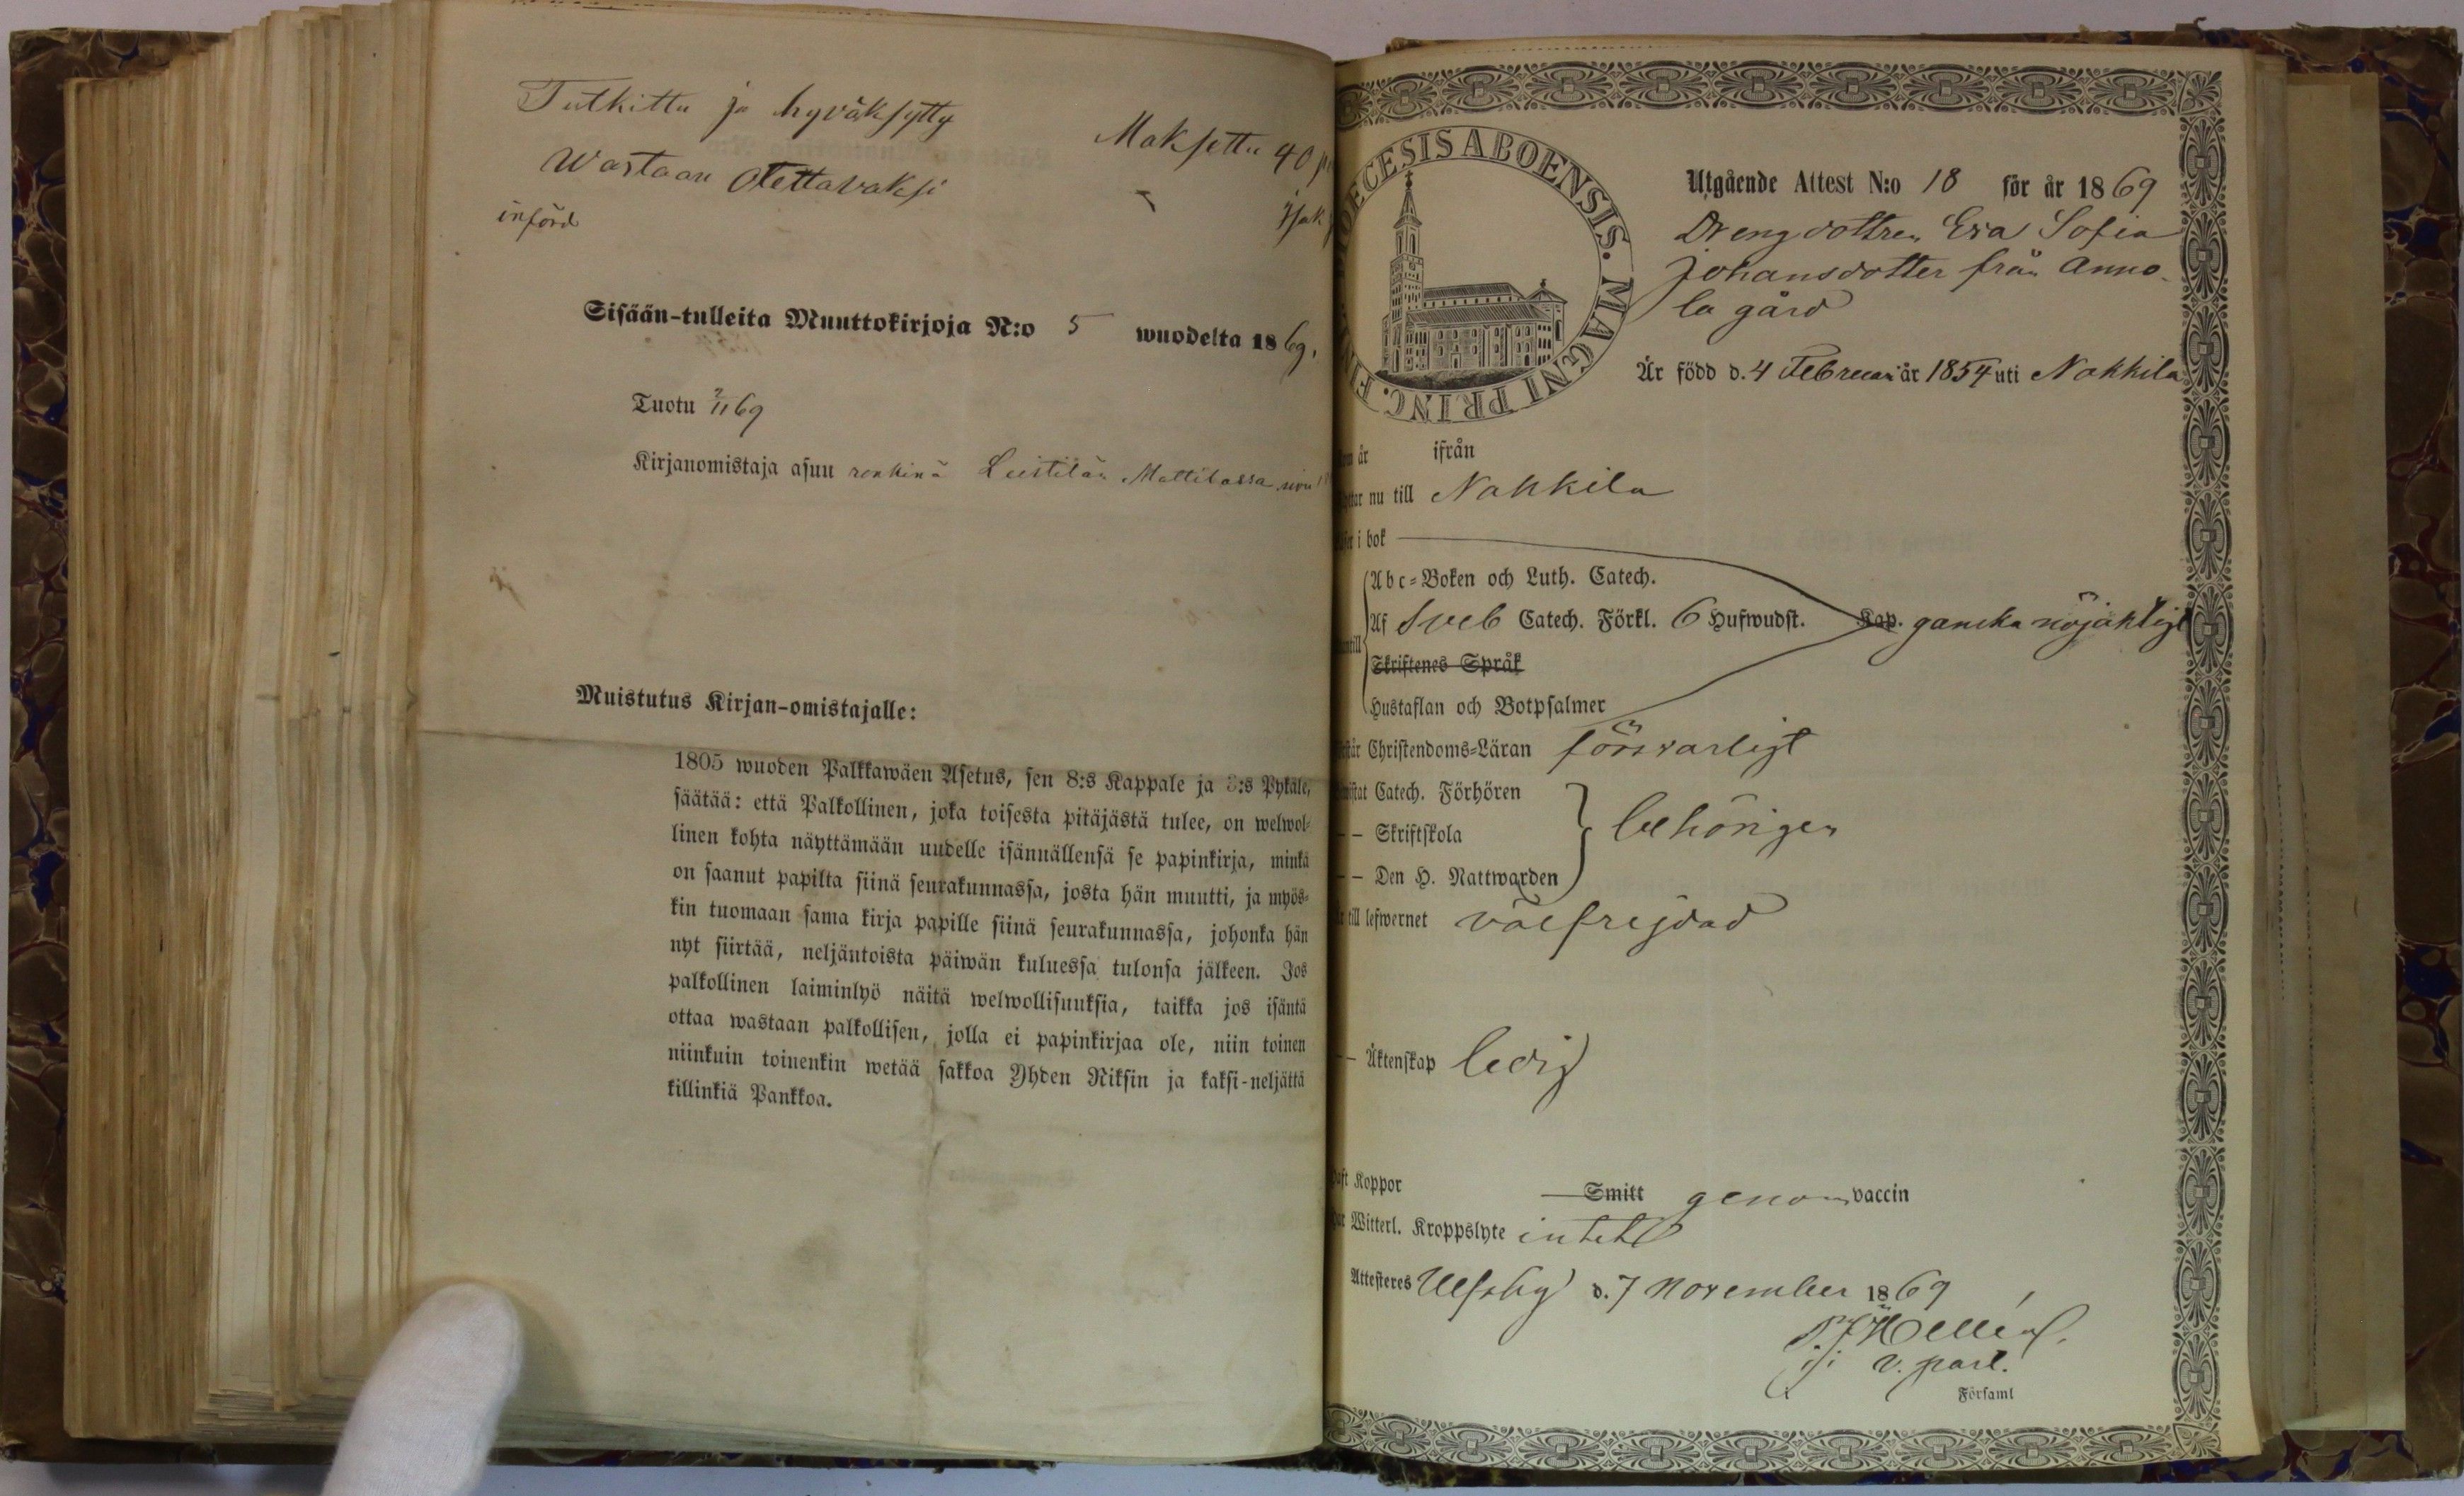 Tutkittu ja hyväksytty
Maksettu 40
Wastaan Otettavaksi
införd
Sisään-tulleita Muuttokirjoja N:o 5 wuodelta 1869.
Tuotu 7/11 69
Kirjanomistaja asuu renkinä Leistilän Mattilassa
Muistutus Kirjan-omistajalle:
1805 wuoden Palkkawäen Asetus, sen 8:s Kappale ja 3:s Pykäle,
säätää: että Palkollinen, joka toisesta pitäjästä tulee, on welwol-
linen kohta näyttämään uudelle isännällensä se papinkirja, minkä
on saanut papilta siinä seurakunnassa, josta hän muutti, ja myös-
kin tuomaan sama kirja papille siinä seurakunnassa, johonka hän
nyt siirtää, neljäntoista päiwän kuluessa tulonsa jälkeen. Jos
palkollinen laiminlyö näitä welwollisuuksia, taikka jos isäntä
ottaa wastaan palkollisen, jolla ei papinkirjaa ole, niin toinen
niinkuin toinenkin wetää sakkoa Yhden Riksin ja kaksi-neljättä
killinkiä Pankkoa.
DIOECESIS ABOENSIS. MAGNI PRINC. FIN
Utgående Attest N:o 18 för år 1869
Drengdottren Eva Sofia
Johansdotter från Anno-
la gård
Är född d. 4 Februari år 1854 uti Nakkila
är ifrån
nu till Nakkila
i bok
Abc-Boken och Luth. Catech.
Af Sveb Catech. Förkl. 6 Hufwudst. Kap. ganska nöjaktigt
Skriftenes Språk
Hustaflan och Botpsalmer
Christendoms-Läran försvarligt
Catech. Förhören
– – Skriftskola behörigen
– – Den H. Nattwarden
till lefwernet välfrejdad
– – Äktenskap ledig
Koppor Smitt genom vaccin
Witterl. Kroppslyte intet
Attesteres Ulfsby d. 7 November 1869
v. past.
Församl